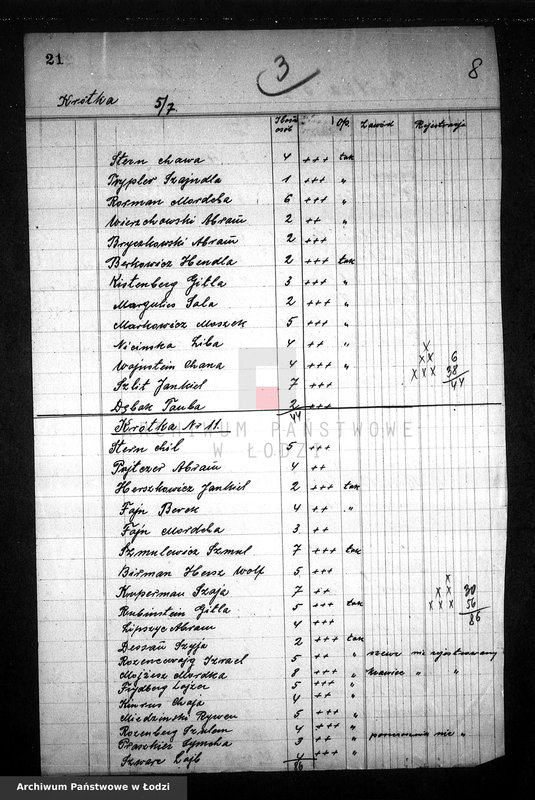 21
3
8
Krótka 5/7
Ilość osób Op. Zawód Rejestracja
Stern Chawa 4 +++ tak
Trypler Szajndla 1 +++ "
Rorman Mordcha 6 +++ "
Wierzchowski Abram 2 ++ "
Bryczkowski Abram 2 +++
Berkowicz Hendla 2 +++ tak
Kistenberg Gitla 3 +++ "
Margulies Sala 2 +++ "
Markowicz Moszek 5 +++ "
Nicinska Liba 4 ++ " x
Wajnstein Chana 4 +++ " xx 6
Szlit Jankiel 7 +++ xxx 38
44
Dębak Tauba 2 +++
44
Krótka No 11.
ARCHIWUM PAŃSTWOWE
W ŁODZI
Stern Chil 5 +++
Pojtczer Abram 4 ++
Herszkowicz Jankiel 2 +++ tak
Fajn Berek 4 ++ "
Fajn Mordcha 3 ++
Szmulewicz Szmul 7 +++ tak
Birman Hersz Wolf 5 +++ x
Kuperman Szaja 7 ++ x x 30
Rubinstein Gitla 5 +++ tak x x x 56
86
Lipszyc Abram 4 +++
Dessau Szyja 2 +++ tak
Rozencwajg Izrael 5 ++ " szewc nie rejestrowany
Mojżesz Mordka 8 +++ " krawiec " "
Frydberg Lajzer 5 ++ "
Kinrus Chaja 4 ++ "
Miedzinski Rywen 5 +++ "
Rozenberg Szulem 4 +++ "
Ptaszkier Symcha 3 ++ " nie "
Szwarc Lajb 4 +++ "
86
Archiwum Państwowe w Łodzi